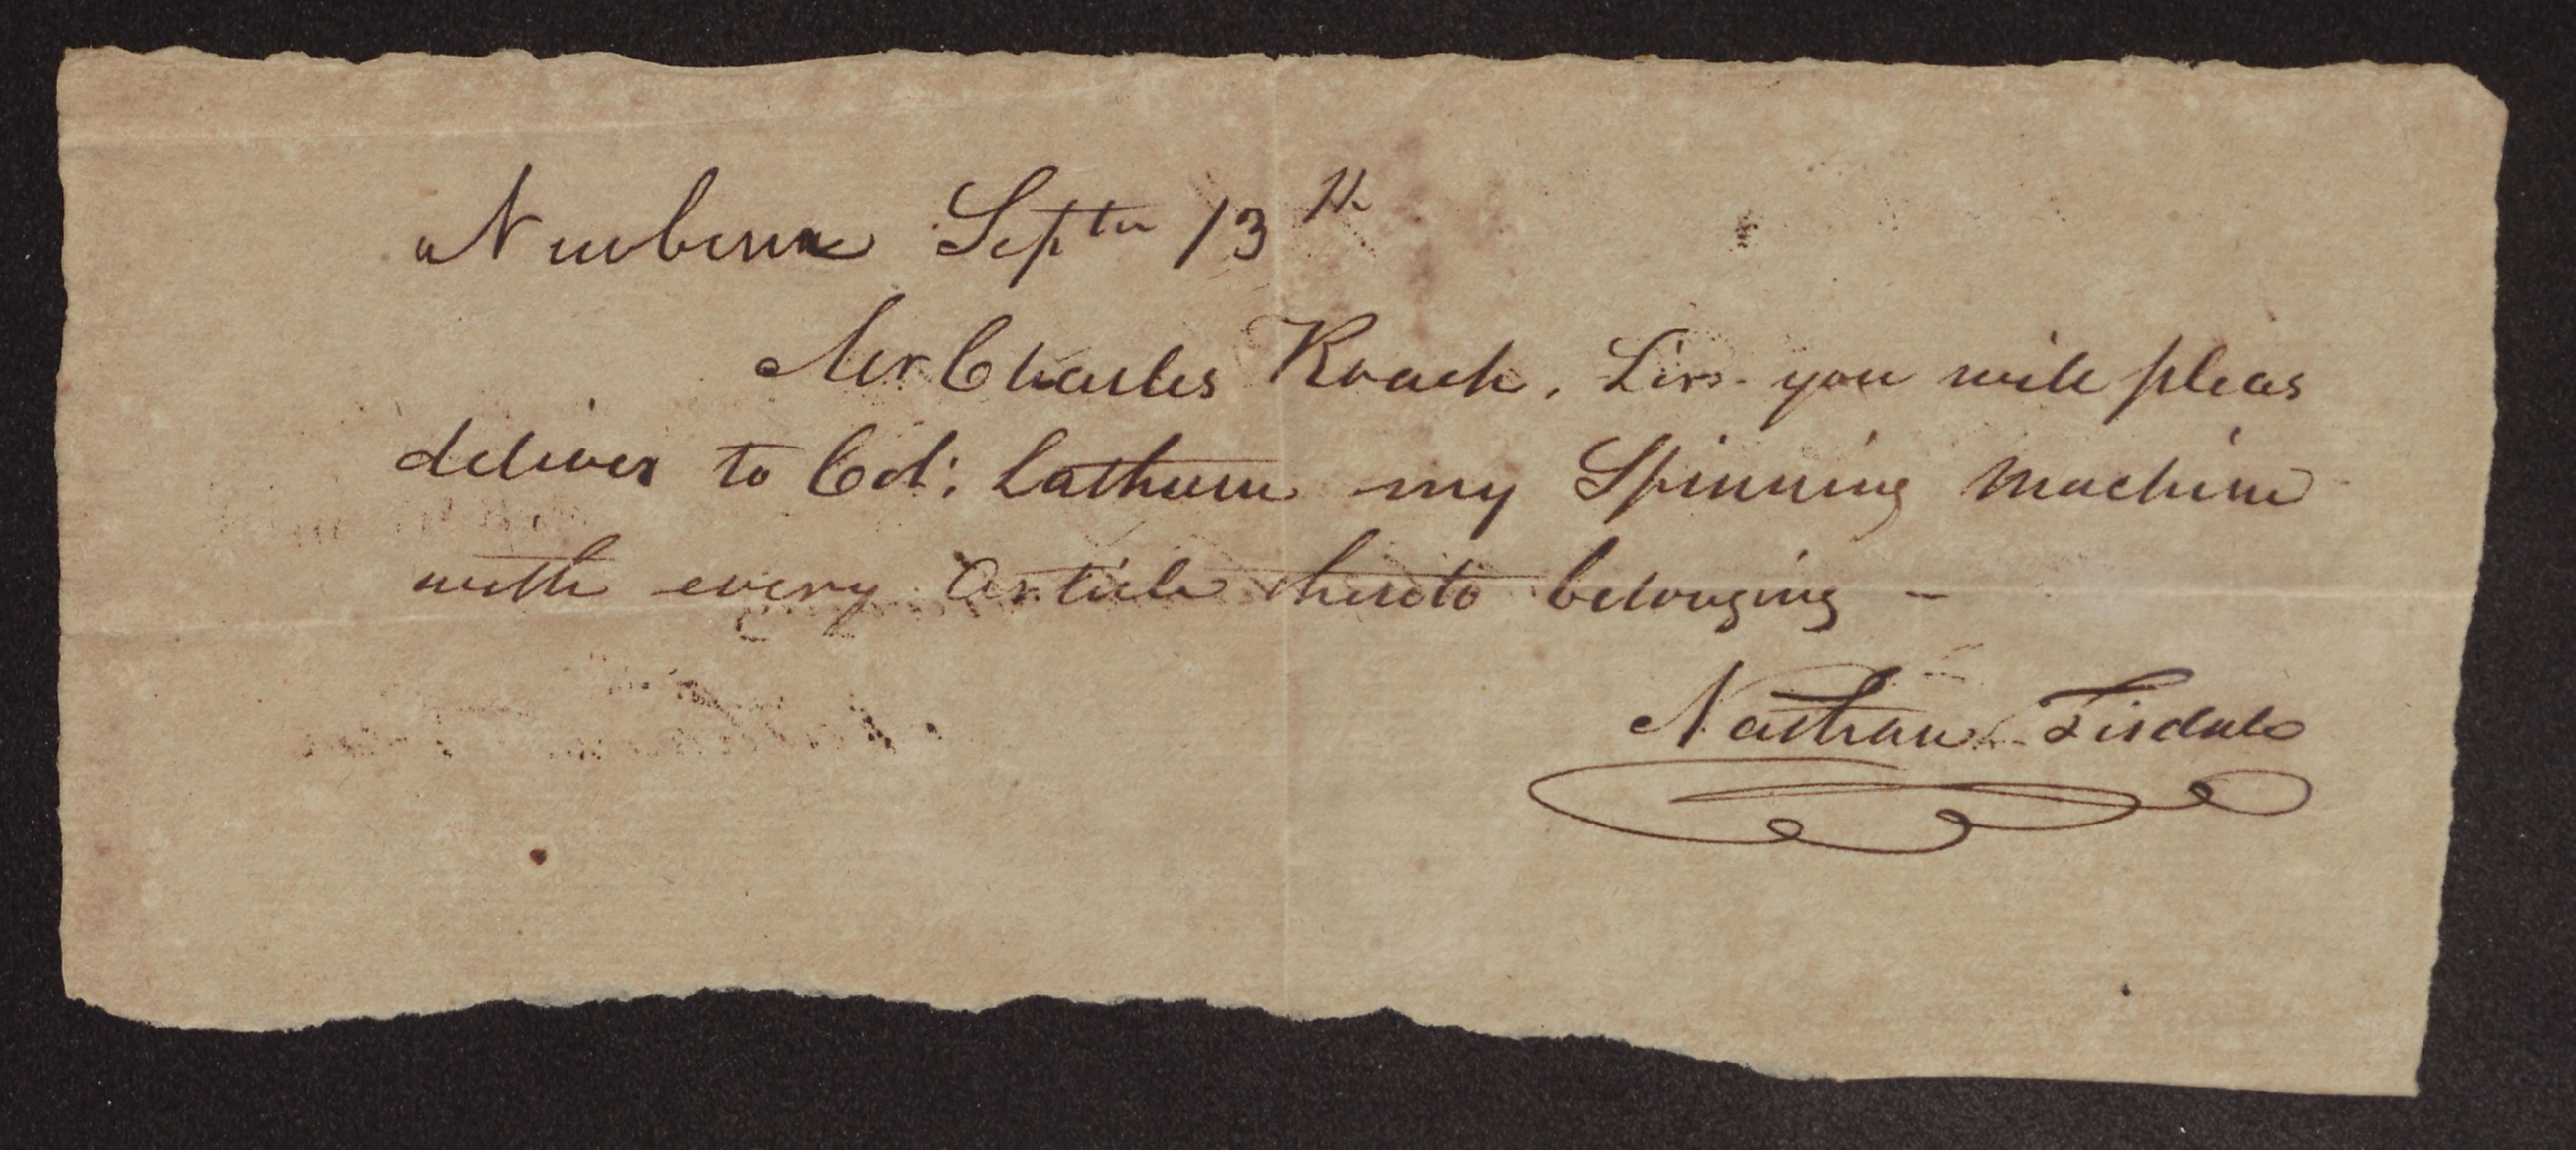 Newbern Septer 13th
Mr Charles Roach, Sir. you will pleas
deliver to Col: Lathum my Spinning Machine
with every Article thereto belonging -
Nathan Tisdale